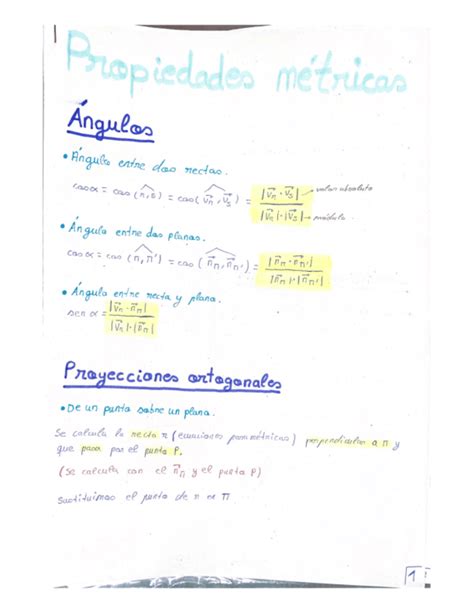 Propiedades métricas
Ángulos
• Ángulo entre dos rectas.
cos α = cos (r, s) = cos (v⃗r, v⃗s) = |v⃗r · v⃗s| / |v⃗r| · |v⃗s| → valor absoluto → módulo
• Ángulo entre dos planos.
cos α = cos (π, π') = cos (n⃗π, n⃗π') = |n⃗π · n⃗π'| / |n⃗π| · |n⃗π'|
• Ángulo entre recta y plano.
sen α = |v⃗r · n⃗π| / |v⃗r| · |n⃗π|
Proyecciones ortogonales
• De un punto sobre un plano.
Se calcula la recta r (ecuaciones paramétricas) perpendicular a π y
que pasa por el punto P.
(Se calcula con el n⃗π y el punto P)
Sustituimos el punto de r en π
1